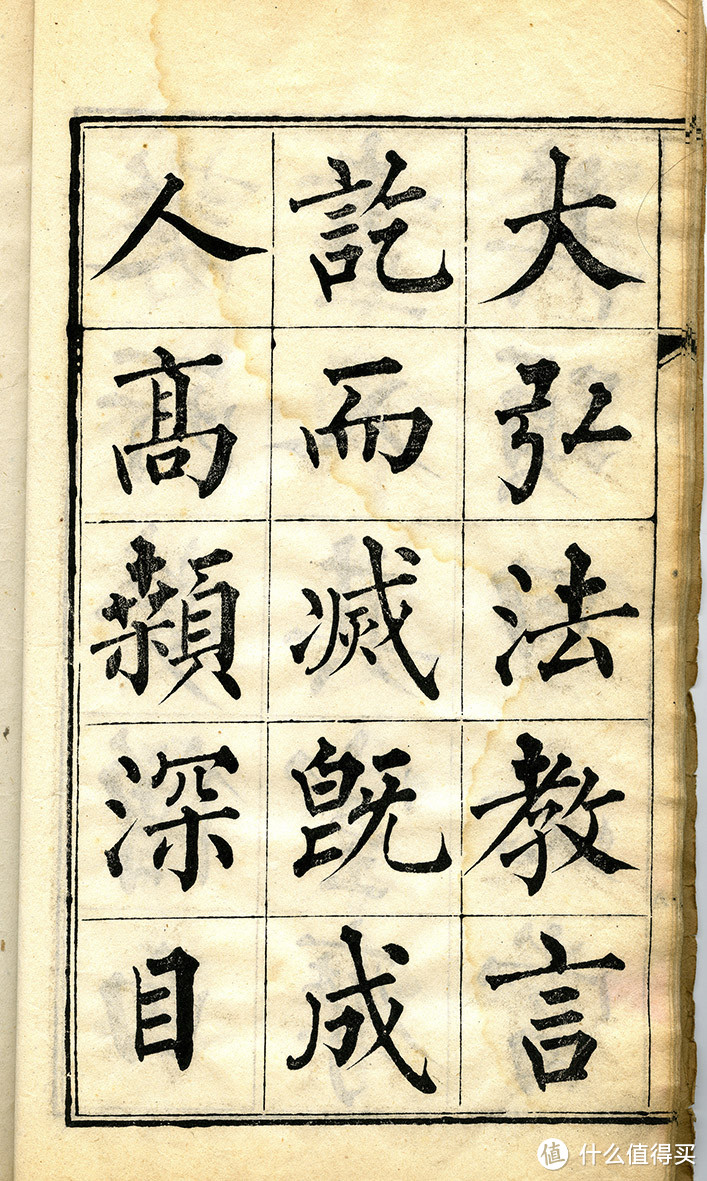 大弘法教言
訖而滅既成
人高顙深目
值 什么值得买